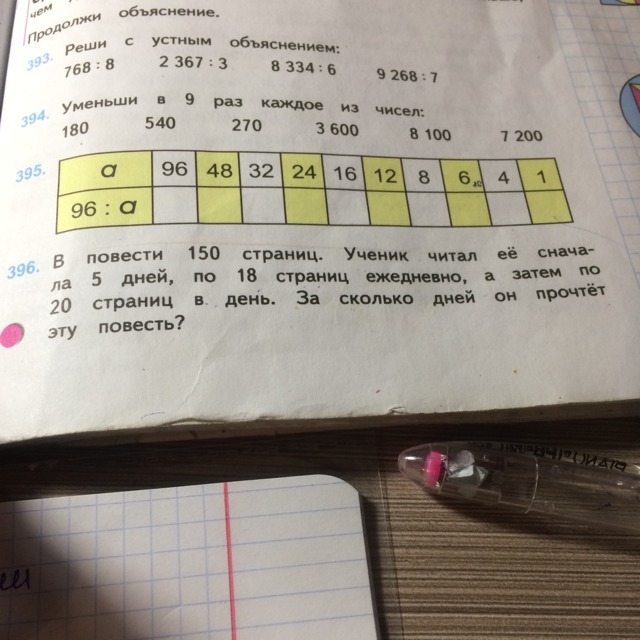 чем
Продолжи объяснение.
393. Реши с устным объяснением:
768 : 8 2 367 : 3 8 334 : 6 9 268 : 7
394. Уменьши в 9 раз каждое из чисел:
180 540 270 3 600 8 100 7 200
395. a 96 48 32 24 16 12 8 6 4 1
96 : a
396. В повести 150 страниц. Ученик читал её снача-
ла 5 дней, по 18 страниц ежедневно, а затем по
20 страниц в день. За сколько дней он прочтёт
эту повесть?